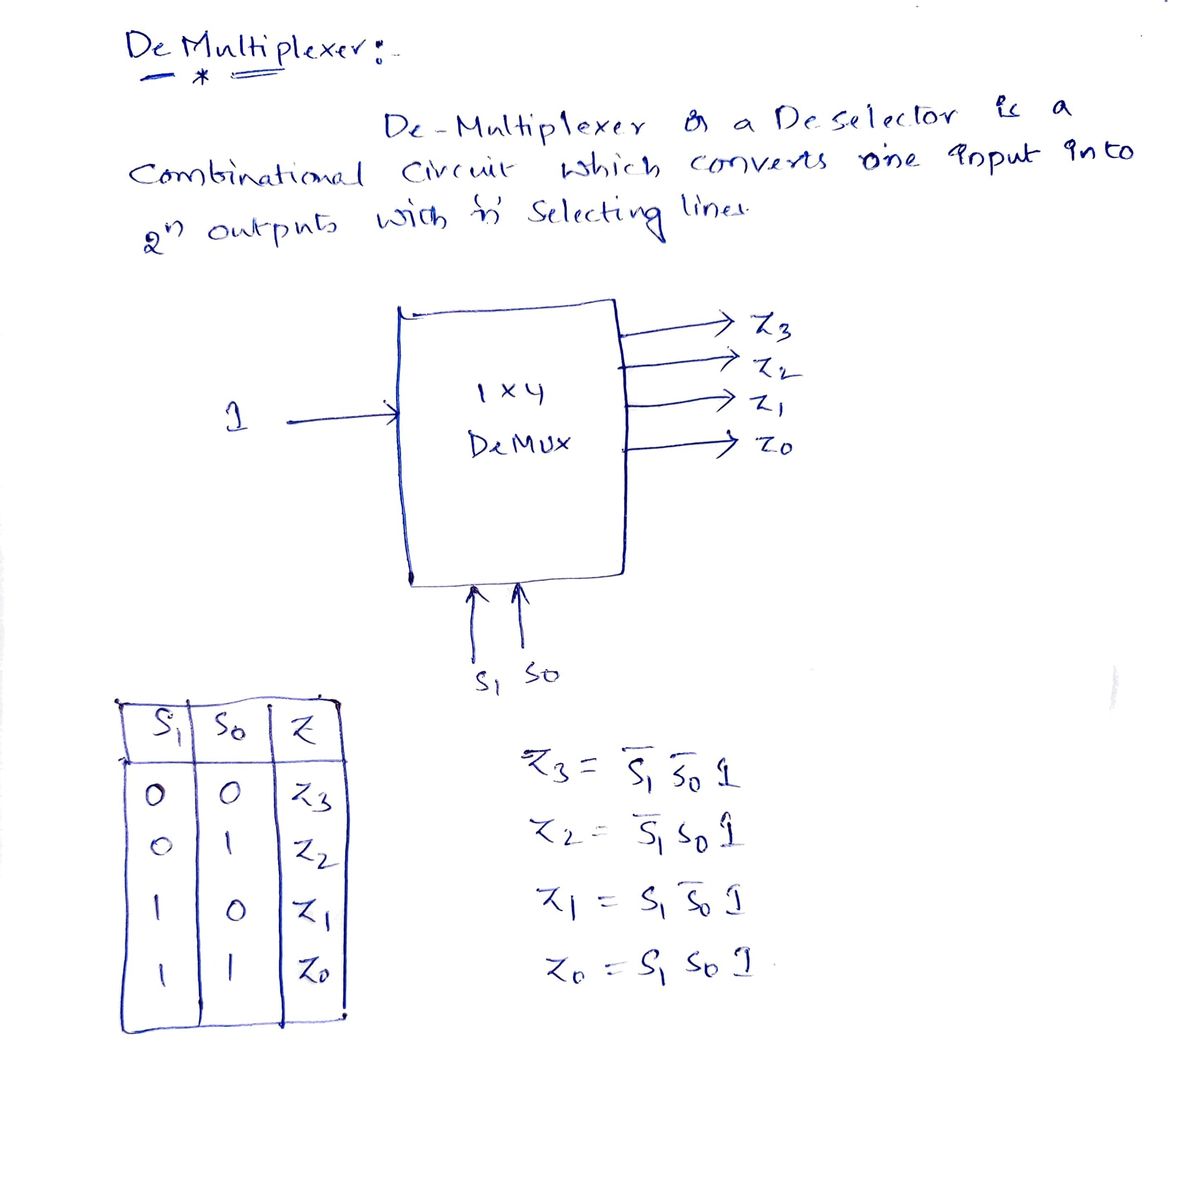 De Multiplexer:-
De-Multiplexer or a Deselector is a
Combinational Circuit which converts one input into
2ⁿ outputs with 'n' Selecting lines.
Z3
Z2
1x4
Z1
I
DeMUX
Z0
S1 S0
S1 S0 Z
0 0 Z3
0 1 Z2
1 0 Z1
1 1 Z0
Z3 = S̅1 S̅0 I
Z2 = S̅1 S0 I
Z1 = S1 S̅0 I
Z0 = S1 S0 I